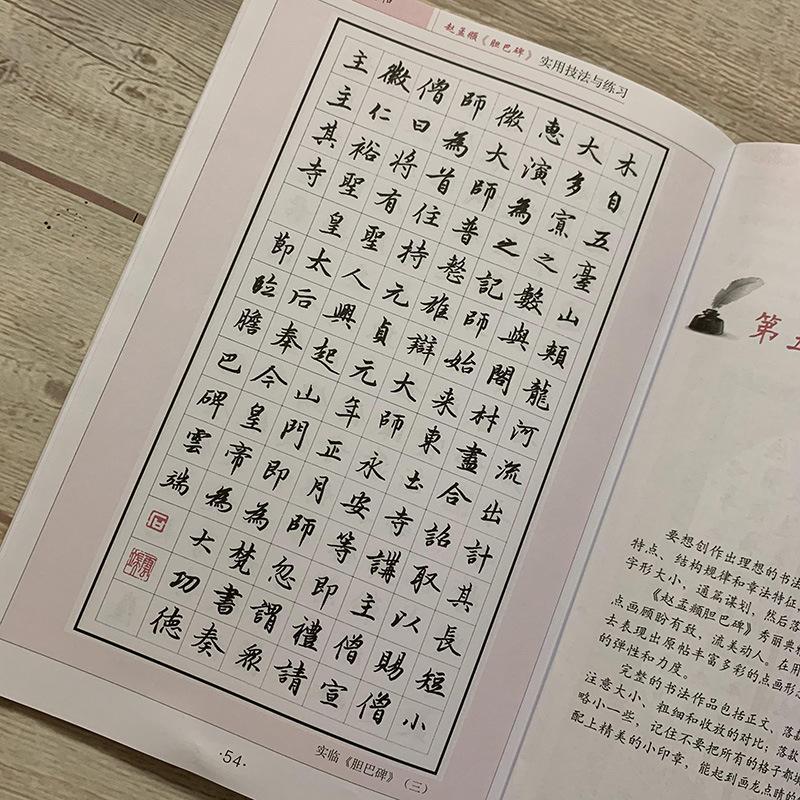 赵孟頫《胆巴碑》 实用技法与练习
木自五臺山頰龍河流出計其長短小
大多賔之數與閣材盡合詔取以賜僧
惠演為之記師始来東土寺講主僧宣
微大師普整雄辯大師永安等即禮請
師為首住持元貞元年正月師忽謂眾
僧曰將有聖人興起山門即為梵書奏
徽仁裕聖皇太后奉今皇帝為大功德
主主其寺
節臨膽巴碑雲端
实临《胆巴碑》（三）
·54·
第
要想创作出理想的书法
特点、结构规律和章法特征
字形大小，通篇谋划，然后落
《赵孟頫胆巴碑》秀丽典
点画顾盼有致、流美动人。在用
去表现出原帖丰富多彩的点画形
的弹性和力度。
完整的书法作品包括正文、落款
注意大小、粗细和收放的对比；落款
略小一些，记住不要把所有的格子都
配上精美的小印章，能起到画龙点睛的